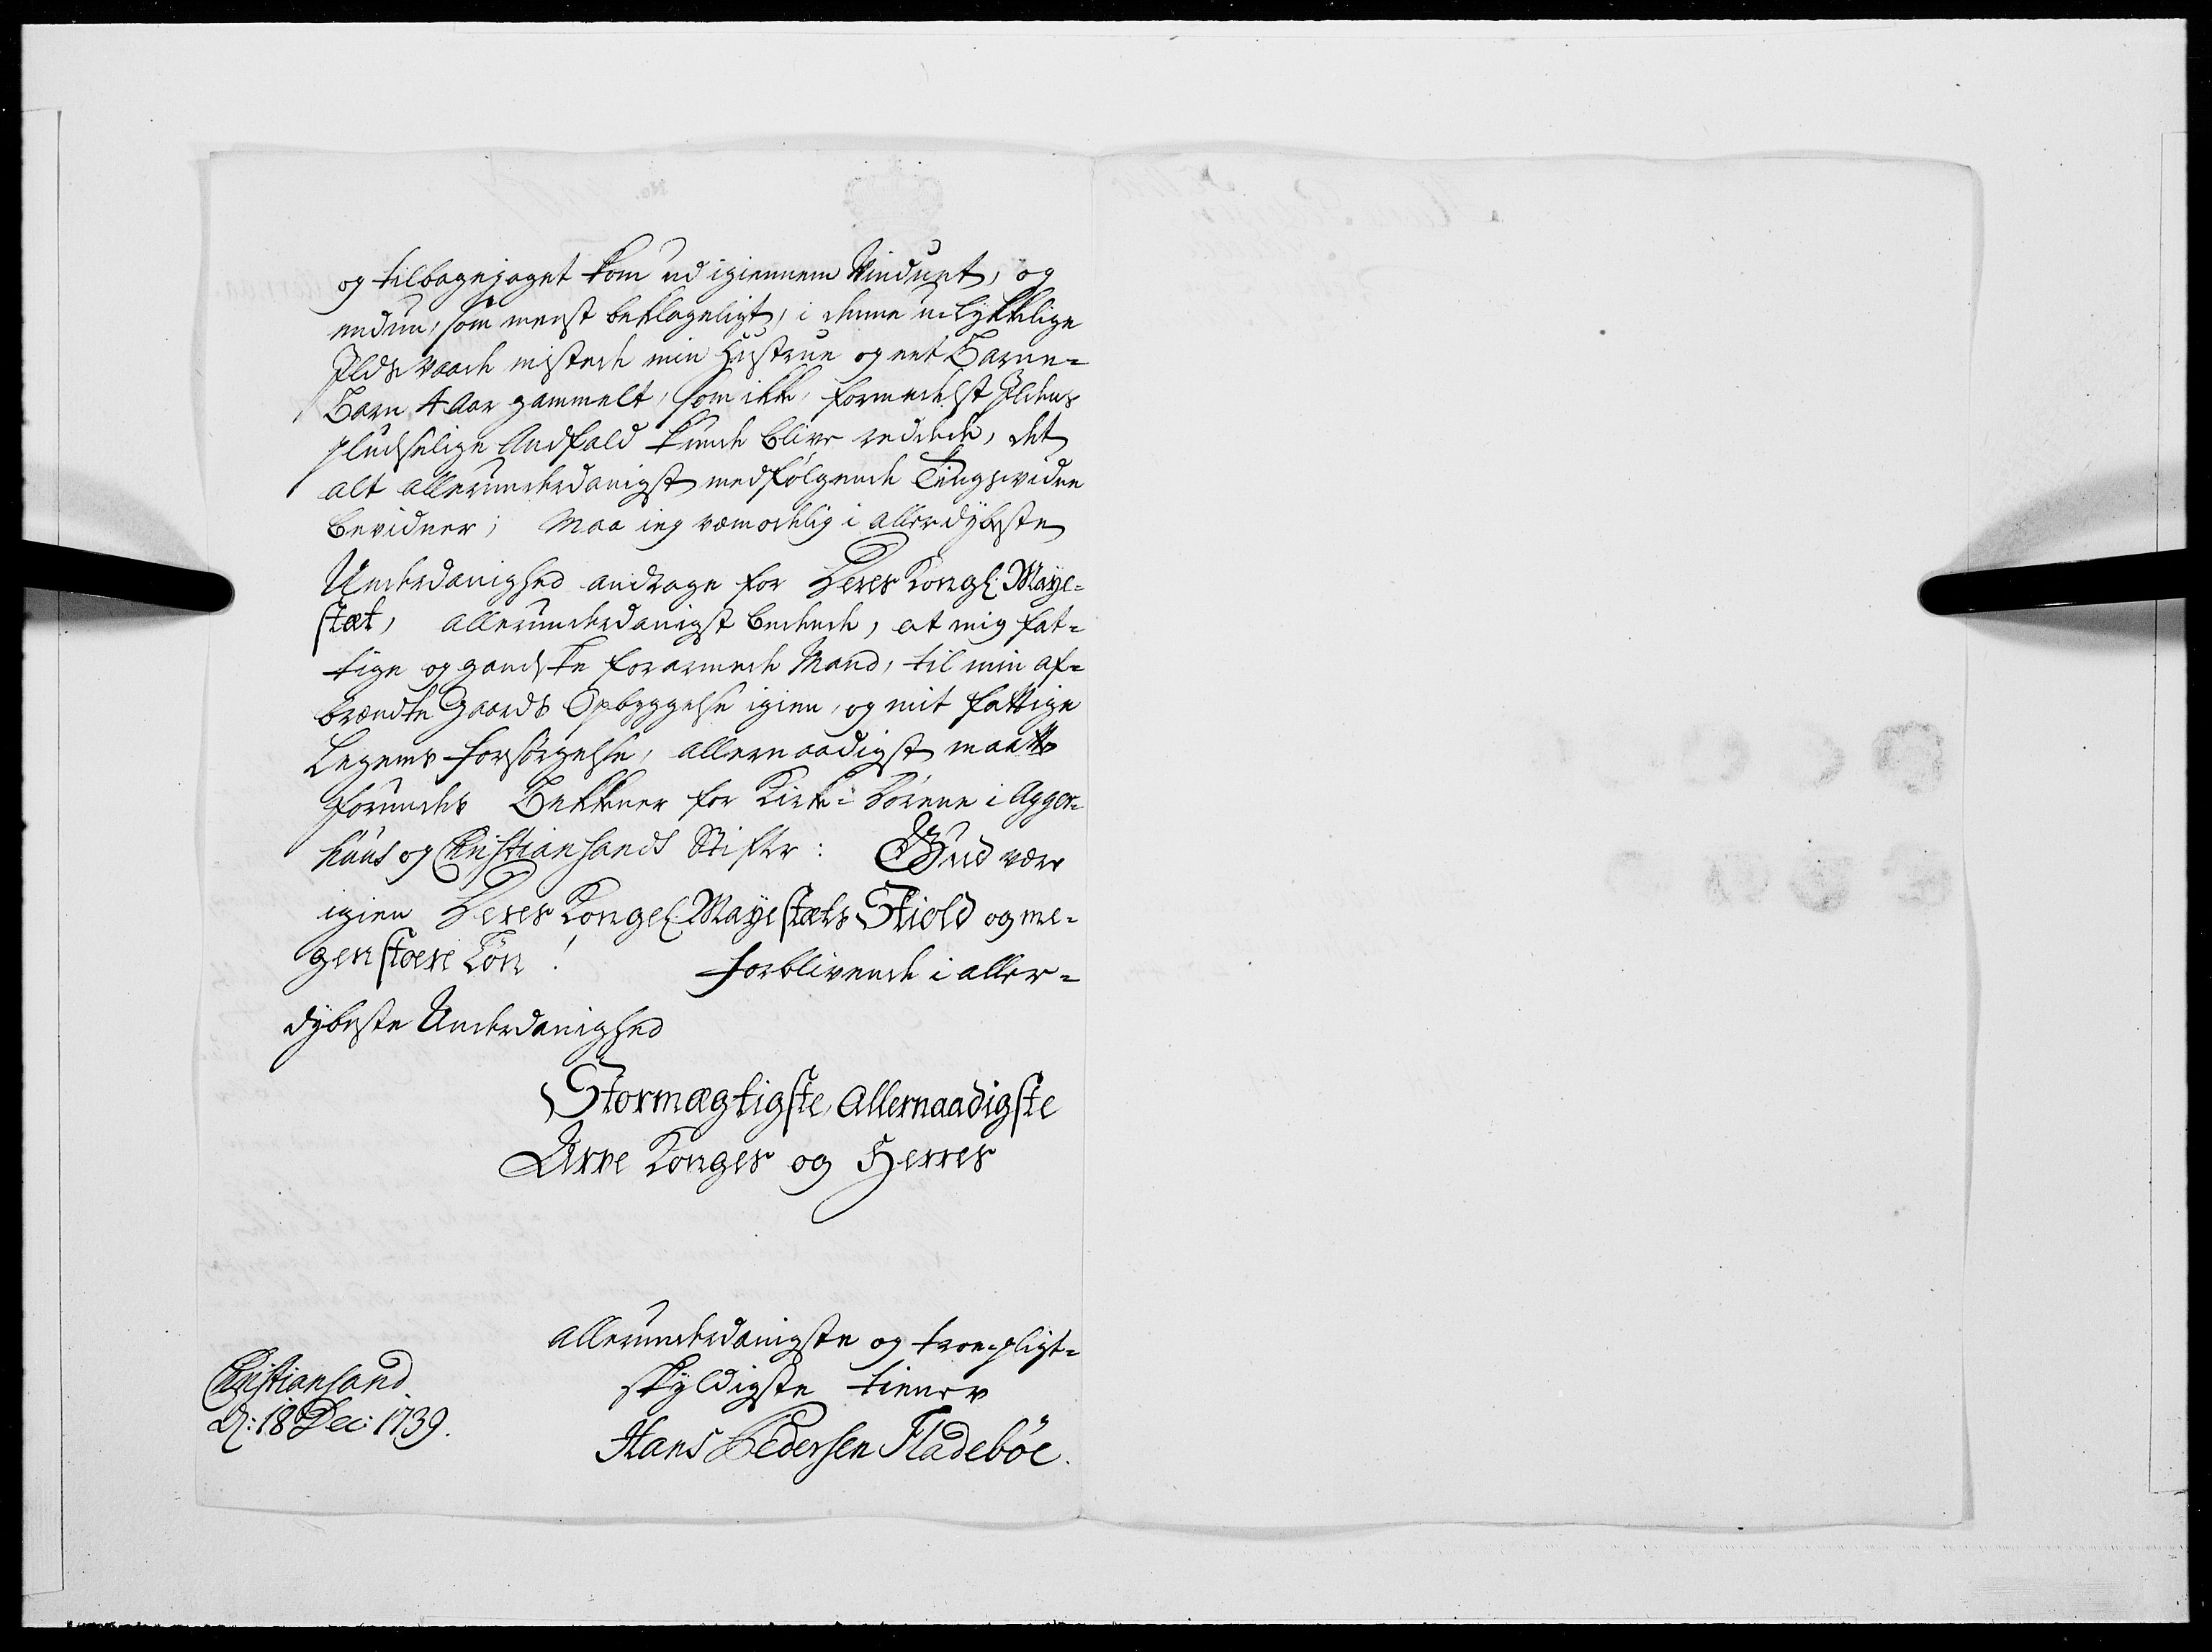 og tilbagejaget kom ud igiennem Vinduet, og
endnu, som meest beklageligt, i denne ulykkelige
Ilds Vaade mistede min Hustrue og eet Barne-
Barn 4 Aar gammelt, som ikke, formedelst Ildens
pludselige Andfald kunde blive reddede, det
alt allerunderdanigst medfølgende Tingsvidne
bevidner; Maa ieg vemodelig i allerdybeste
Underdanighed andrage for Deres Kongl: Maye-
stæt, allerunderdanigst bedende, at mig fat-
tige og gandske forarmede Mand, til min af-
brændte Gaards Opbyggelse igien, og mit fattige
Legems forsørgelse, allernaadigst maatte
forundes Bekkener for Kirke-Dørene i Agger-
huus og Christiansands Stifter: Gud være
igien Deres Kongel: Mayestæts Skiold og me-
gen stoere Løn! forblivende i aller-
dybeste Underdanighed
Stormægtigste, Allernaadigste
Arve Konges og Herres
allerunderdanigste og troe-pligt-
skyldigste tienere
Christiansand
d: 18 Dec: 1739.
Hans Pedersen Fladebøe.